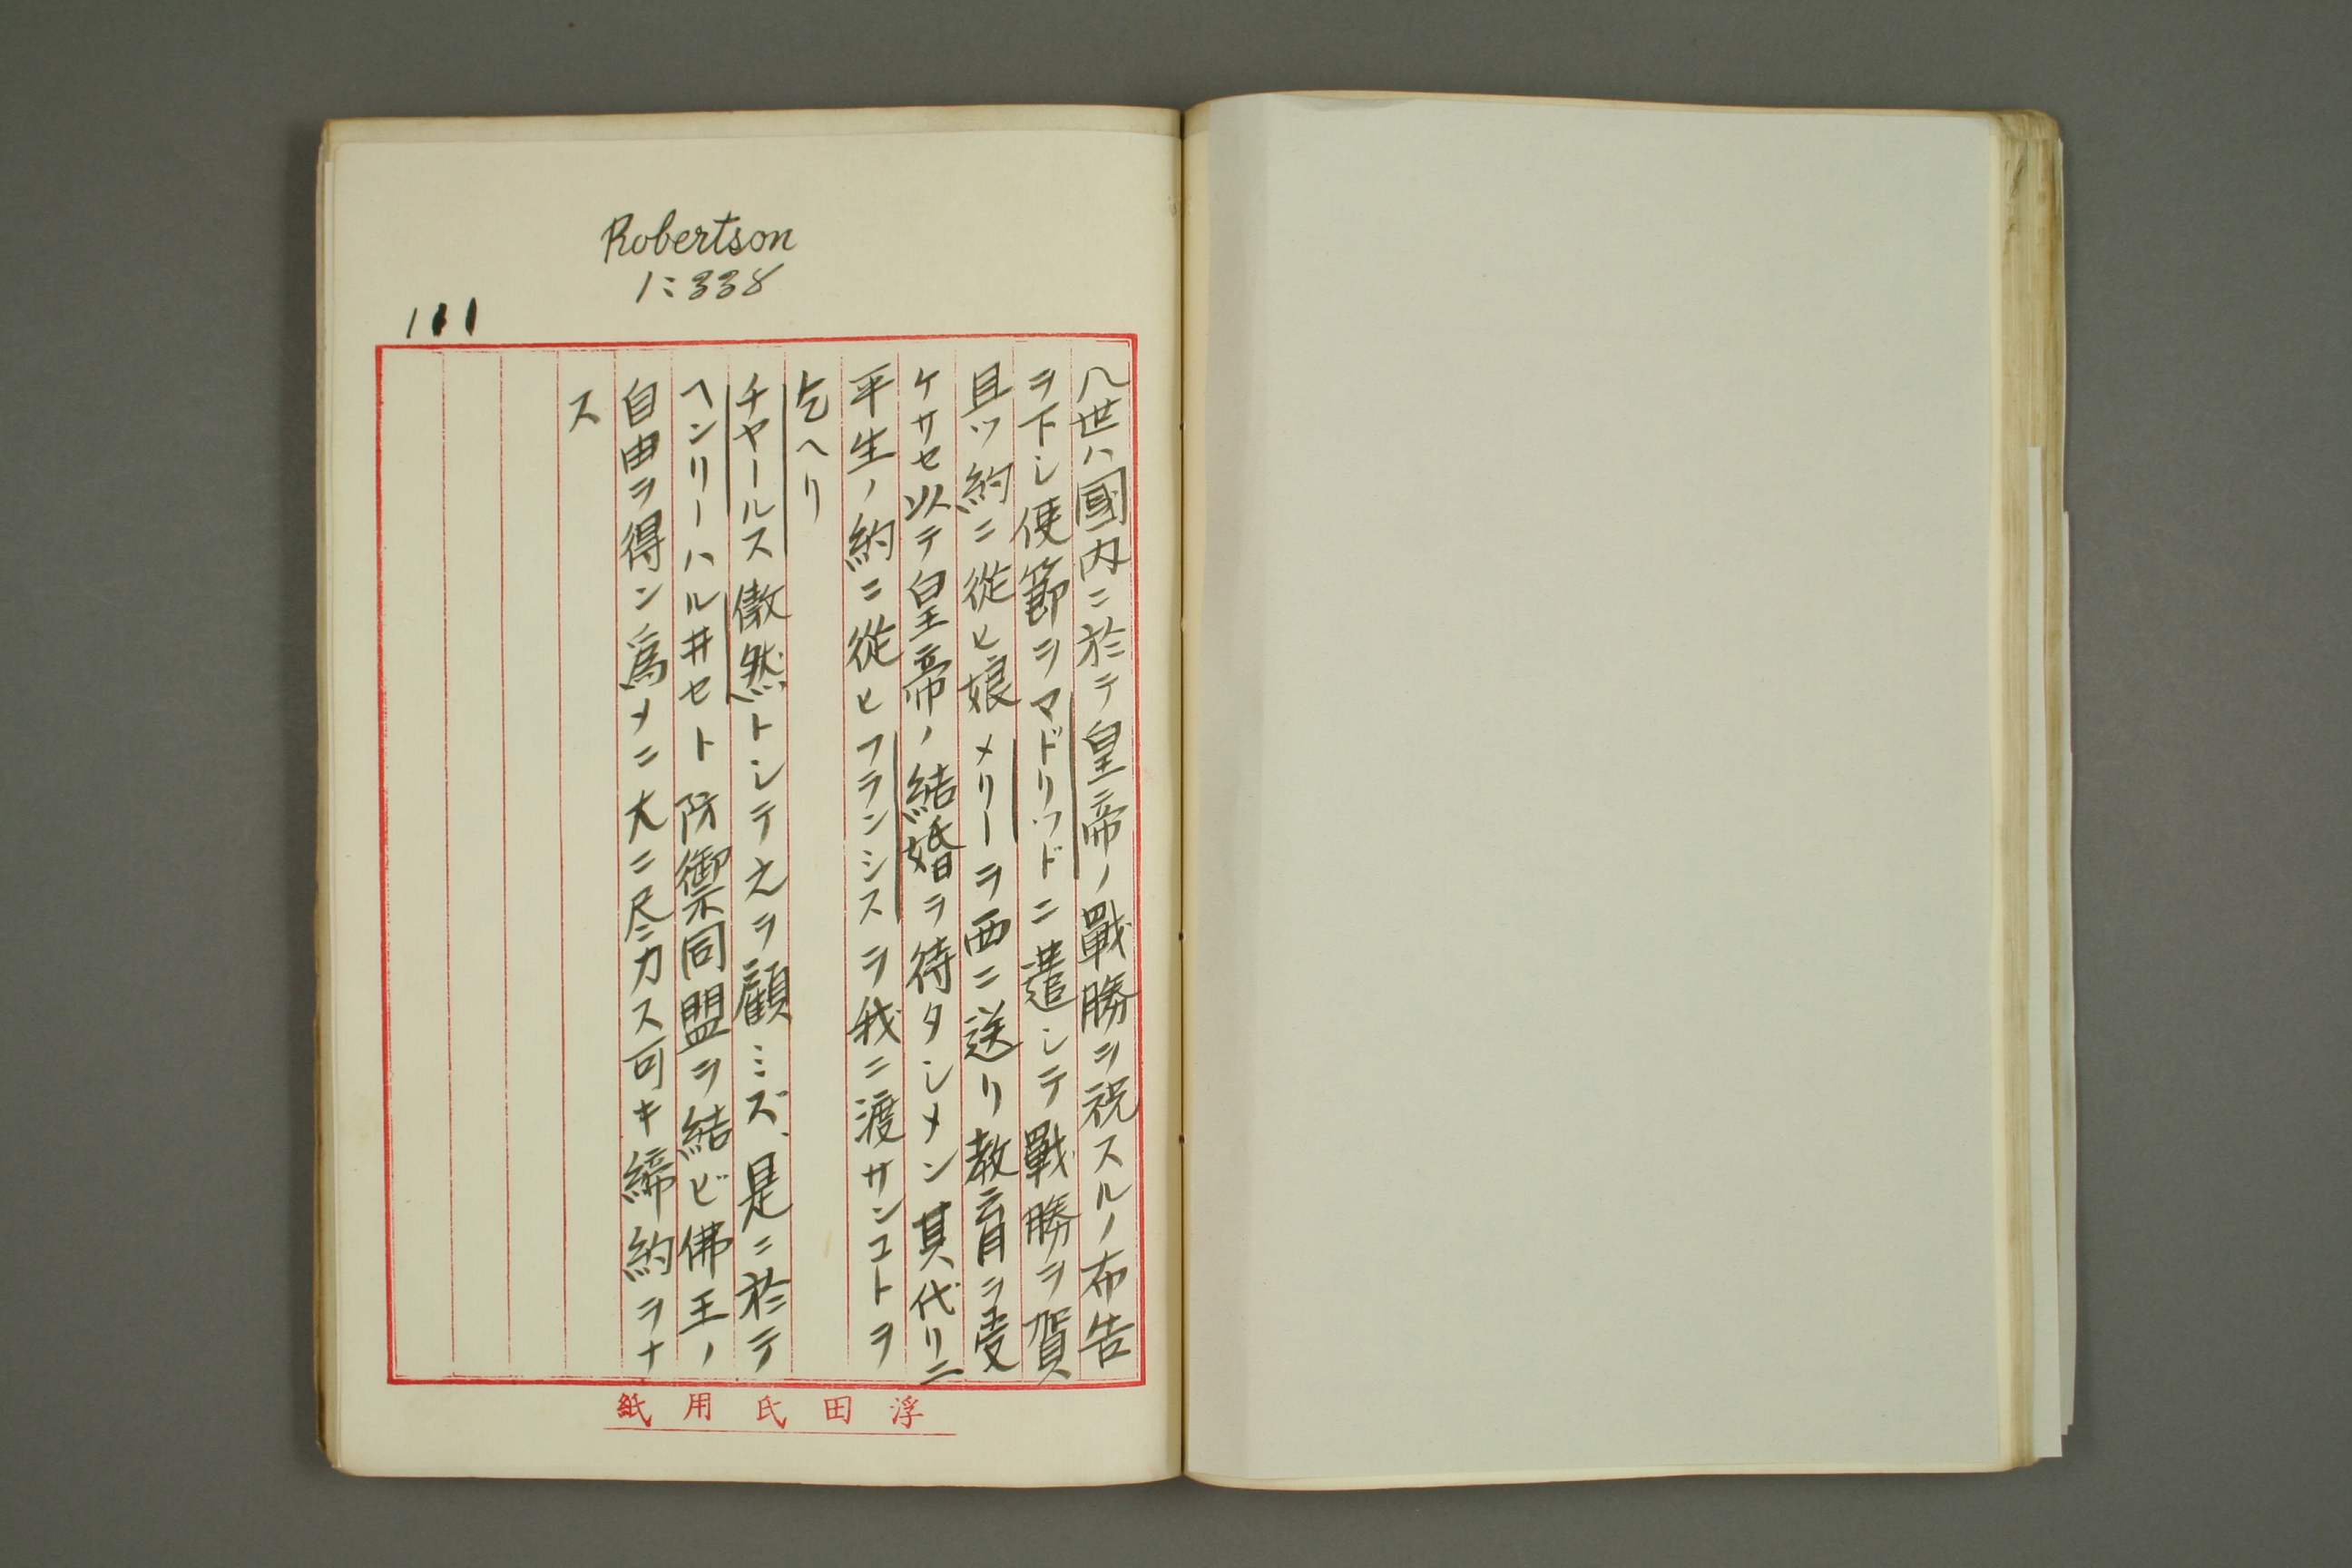 Robertson
1:338
111
八世ハ國内ニ於テ皇帝ノ戰勝ヲ祝スルノ布告
ヲ下シ使節ヲマドリッドニ遣シテ戰勝ヲ賀
且ツ約ニ從ヒ娘メリーヲ西ニ送リ教育ヲ受
ケサセ以テ皇帝ノ結婚ヲ待タシメン其代リニ
平生ノ約ニ從ヒフランシスヲ我ニ渡サンコトヲ
乞ヘリ
チャールス傲然トシテ之ヲ顧ミズ、是ニ於テ
ヘンリーハルイセト防禦同盟ヲ結ビ佛王ノ
自由ヲ得ン為メニ大ニ尽力ス可キ締約ヲナ
ス
浮田氏用紙